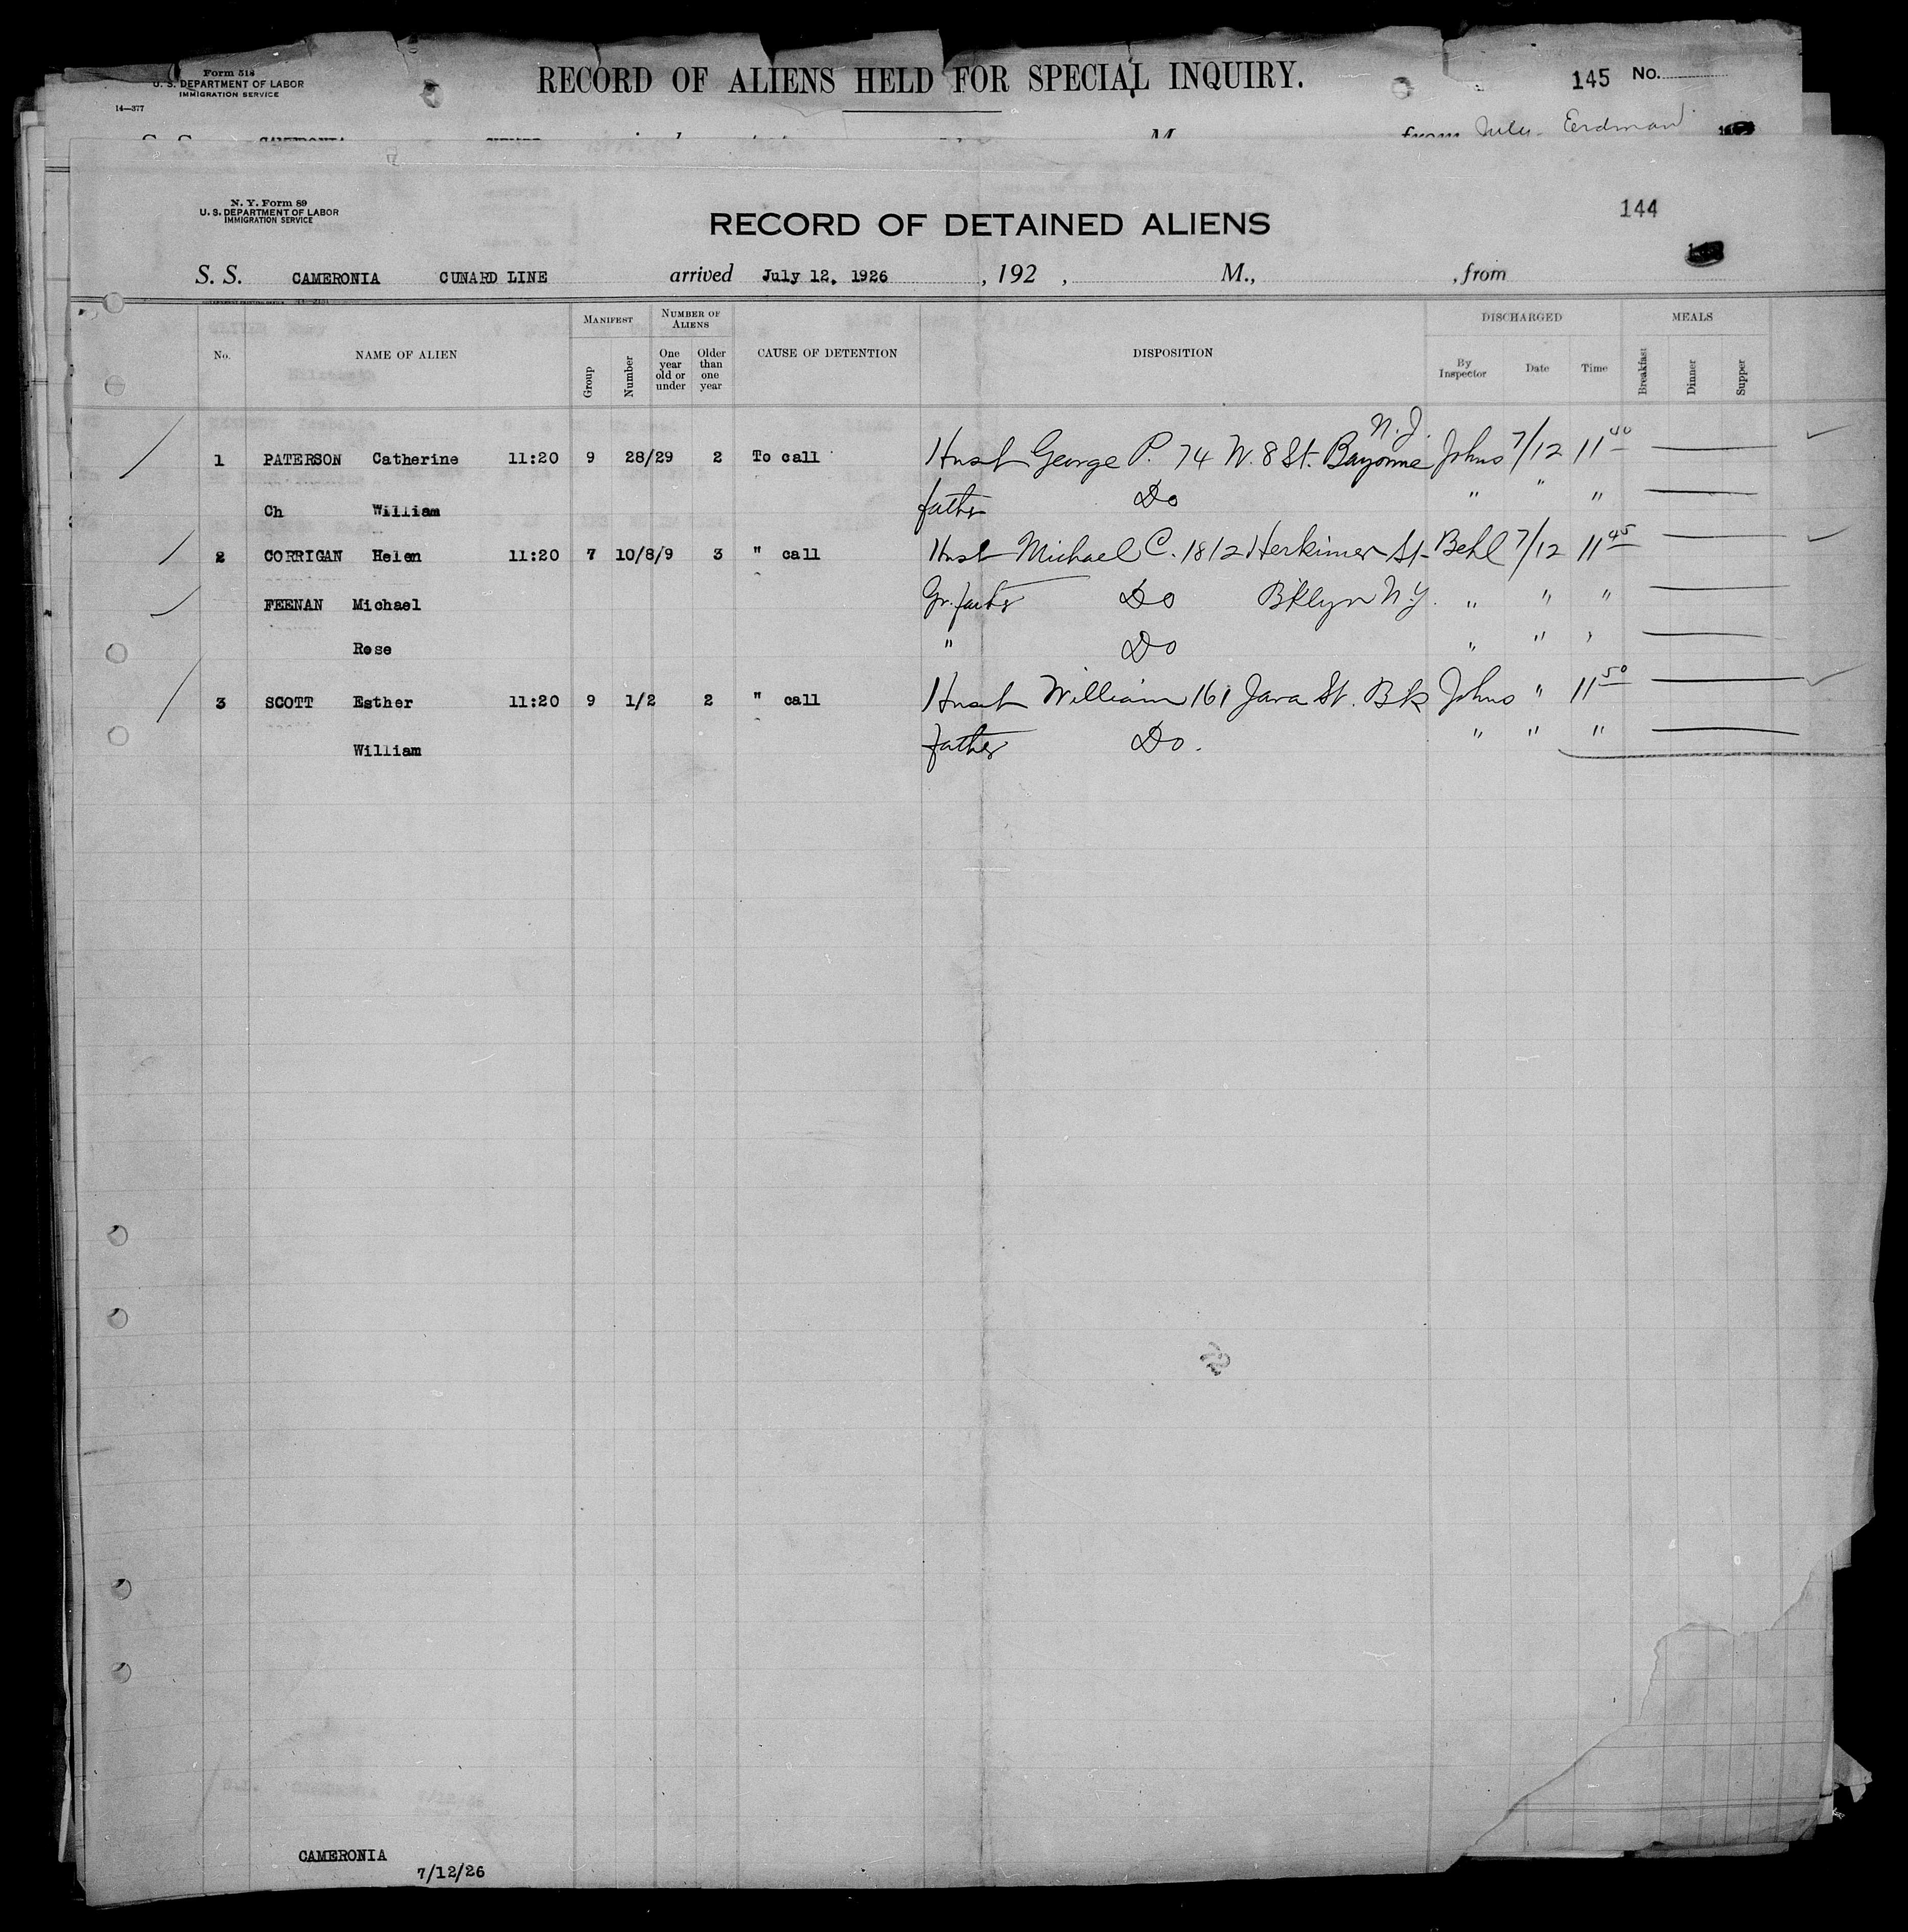 Form 518
U. S. DEPARTMENT OF LABOR
IMMIGRATION SERVICE
14—377
RECORD OF ALIENS HELD FOR SPECIAL INQUIRY.
145 No.
from Erdman
N. Y. Form 89
U. S. DEPARTMENT OF LABOR
IMMIGRATION SERVICE
RECORD OF DETAINED ALIENS
144
S. S. CAMERONIA CUNARD LINE arrived July 12, 1926 , 192 , M., , from
No. NAME OF ALIEN MANIFEST Group Number NUMBER OF ALIENS One year old or under Older than one year CAUSE OF DETENTION DISPOSITION DISCHARGED By Inspector Date Time MEALS Breakfast Dinner Supper
N. J.
1 PATERSON Catherine 11:20 9 28/29 2 To call Husb George P. 74 W. 8 St. Bayonne Johns 7/12 11 40
Ch William father Do " " "
2 CORRIGAN Helen 11:20 7 10/8/9 3 " call Husb Michael C. 1812 Herkimer St- Behl 7/12 11 45
FEENAN Michael Gr. father Do Bklyn N.Y. " " "
Rose " Do " " "
3 SCOTT Esther 11:20 9 1/2 2 " call Husb William 161 Java St. Bk Johns " 11 50
William father Do. " " "
CAMERONIA
7/12/26